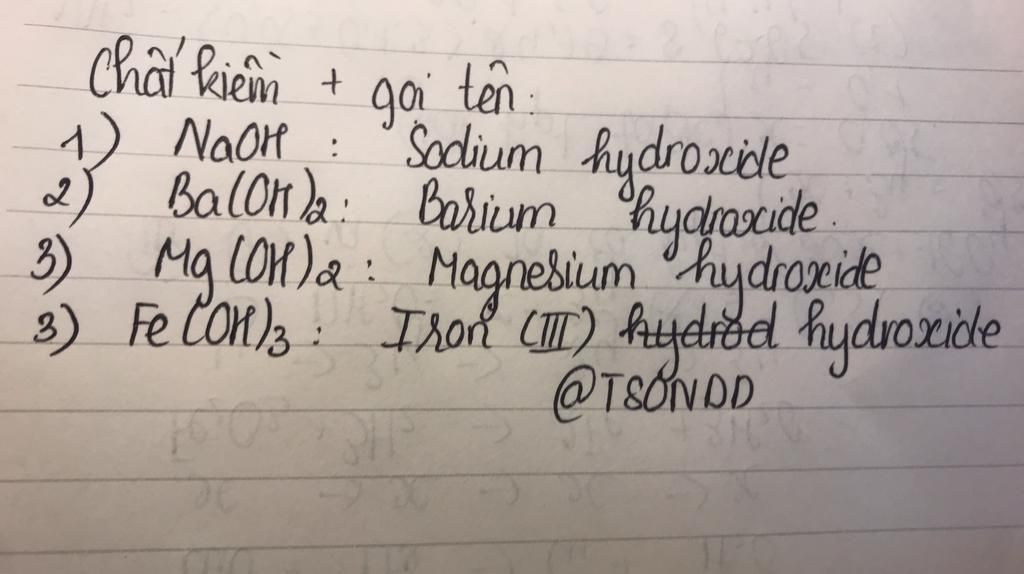 Chất kiềm + gọi tên:
1) NaOH : Sodium hydroxide
2) Ba(OH)2 : Barium hydroxide.
3) Mg(OH)2 : Magnesium hydroxide
3) Fe(OH)3 : Iron (III) hydrod hydroxide
@TSONDD